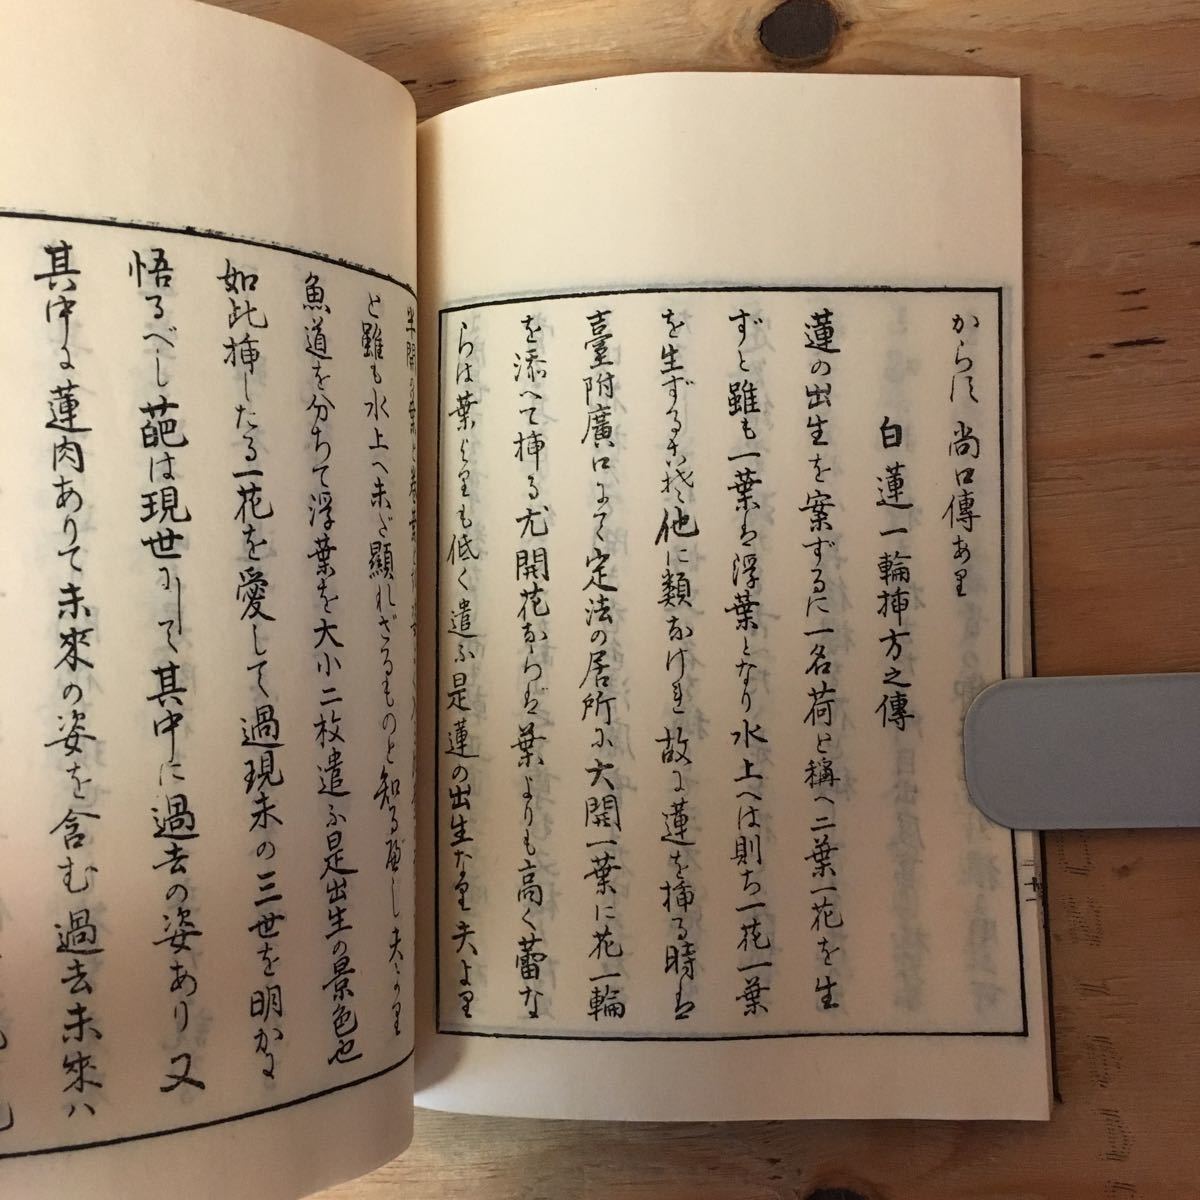 からず尚口傳あり
白蓮一輪挿方之傳
蓮の出生を案ずるに一名荷と稱へ二葉一花を生
ずと雖も一葉は浮葉となり水上へは則ち一花一葉
を生ずること他に類なけれ故に蓮を挿る時は
臺附廣口にて定法の居所に大開一葉に花一輪
を添へて挿る尤開花ならば葉よりも高く蕾な
らは葉よりも低く遣ふ是蓮の出生なり夫より
半開の葉と巻葉と
と雖も水上へ未だ顯れざるものと知るべし夫より
魚道を分ちて浮葉を大小二枚遣ふ是出生の景色也
如此挿したる一花を愛して過現未の三世を明かに
悟るべし葩は現世にして其中に過去の姿あり又
其中に蓮肉ありて未來の姿を含む過去未來ハ
二十一